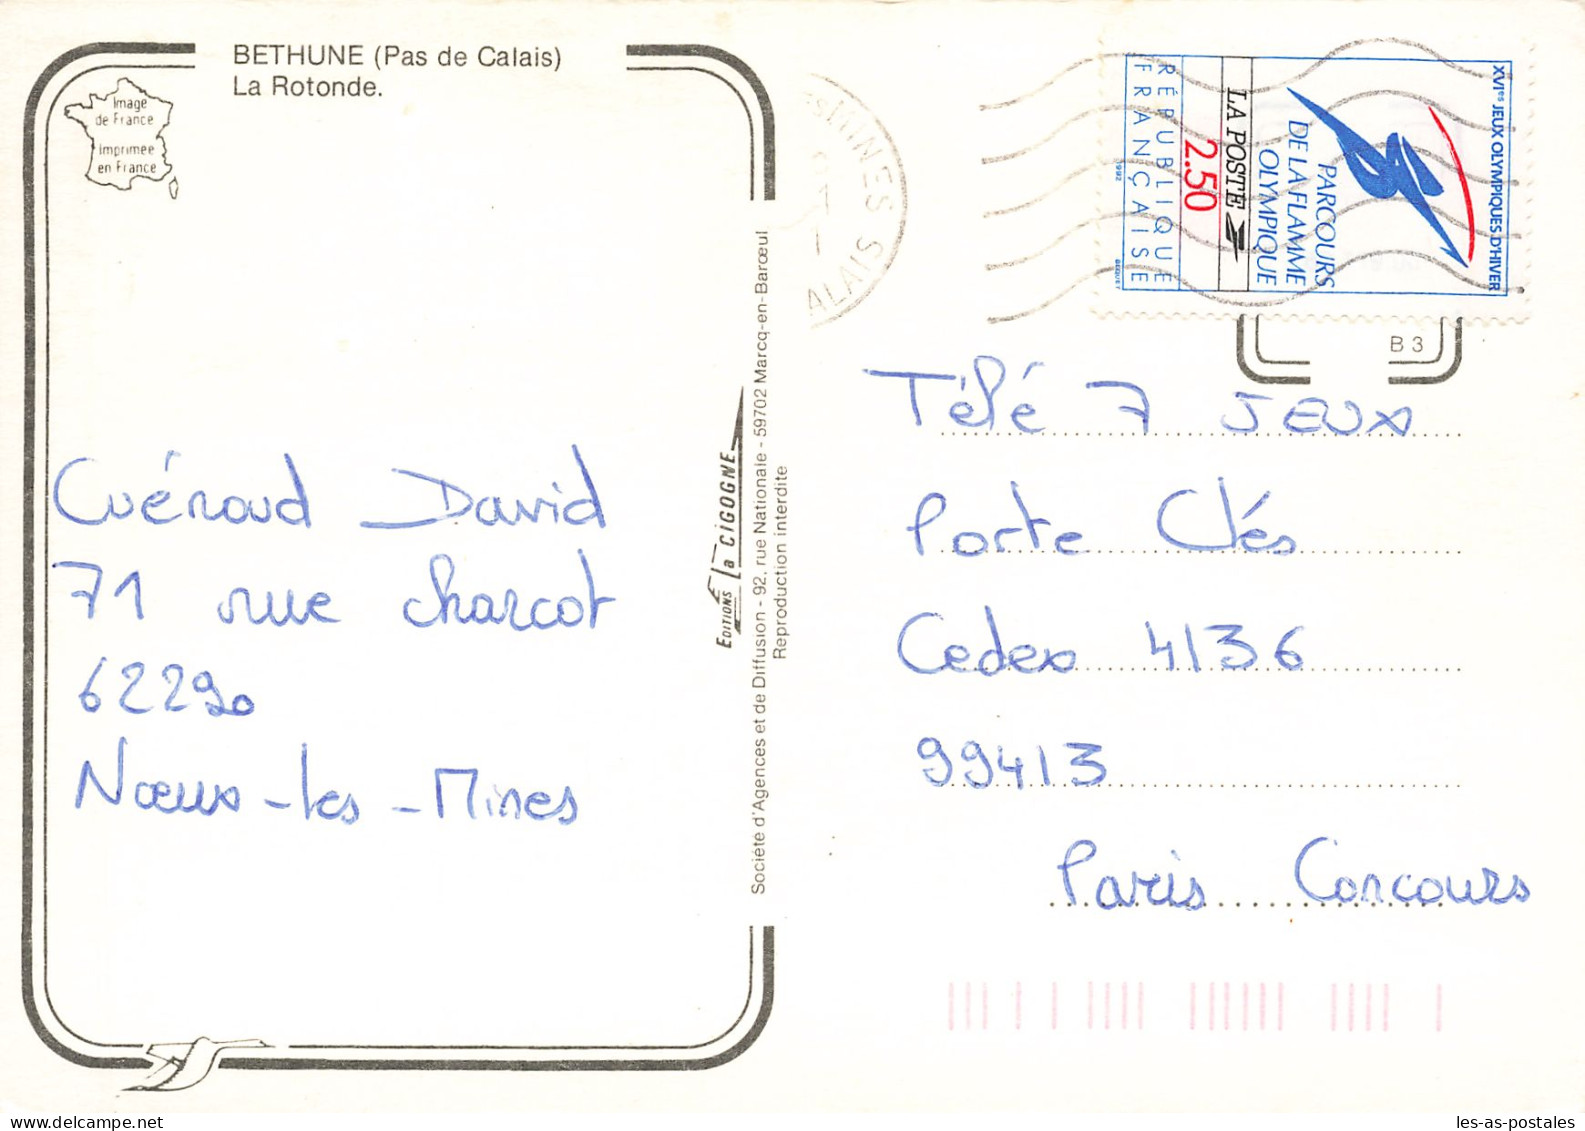 BETHUNE (Pas de Calais)
La Rotonde.
Image
de France
Imprimée
en France
Guéroud David
71 rue charcot
62290
Nœux-les-Mines
EDITIONS La CIGOGNE
Société d'Agences et de Diffusion - 92, rue Nationale - 59702 Marcq-en-Barœul
Reproduction interdite
MINES
ALAIS
RÉPUBLIQUE
FRANÇAISE
1992
BEQUET
2.50
LA POSTE
PARCOURS
DE LA FLAMME
OLYMPIQUE
XVIes JEUX OLYMPIQUES D'HIVER
B 3
Télé 7 JEUX
Porte Clés
Cedex 4136
99413
Paris Concours
les-as-postales